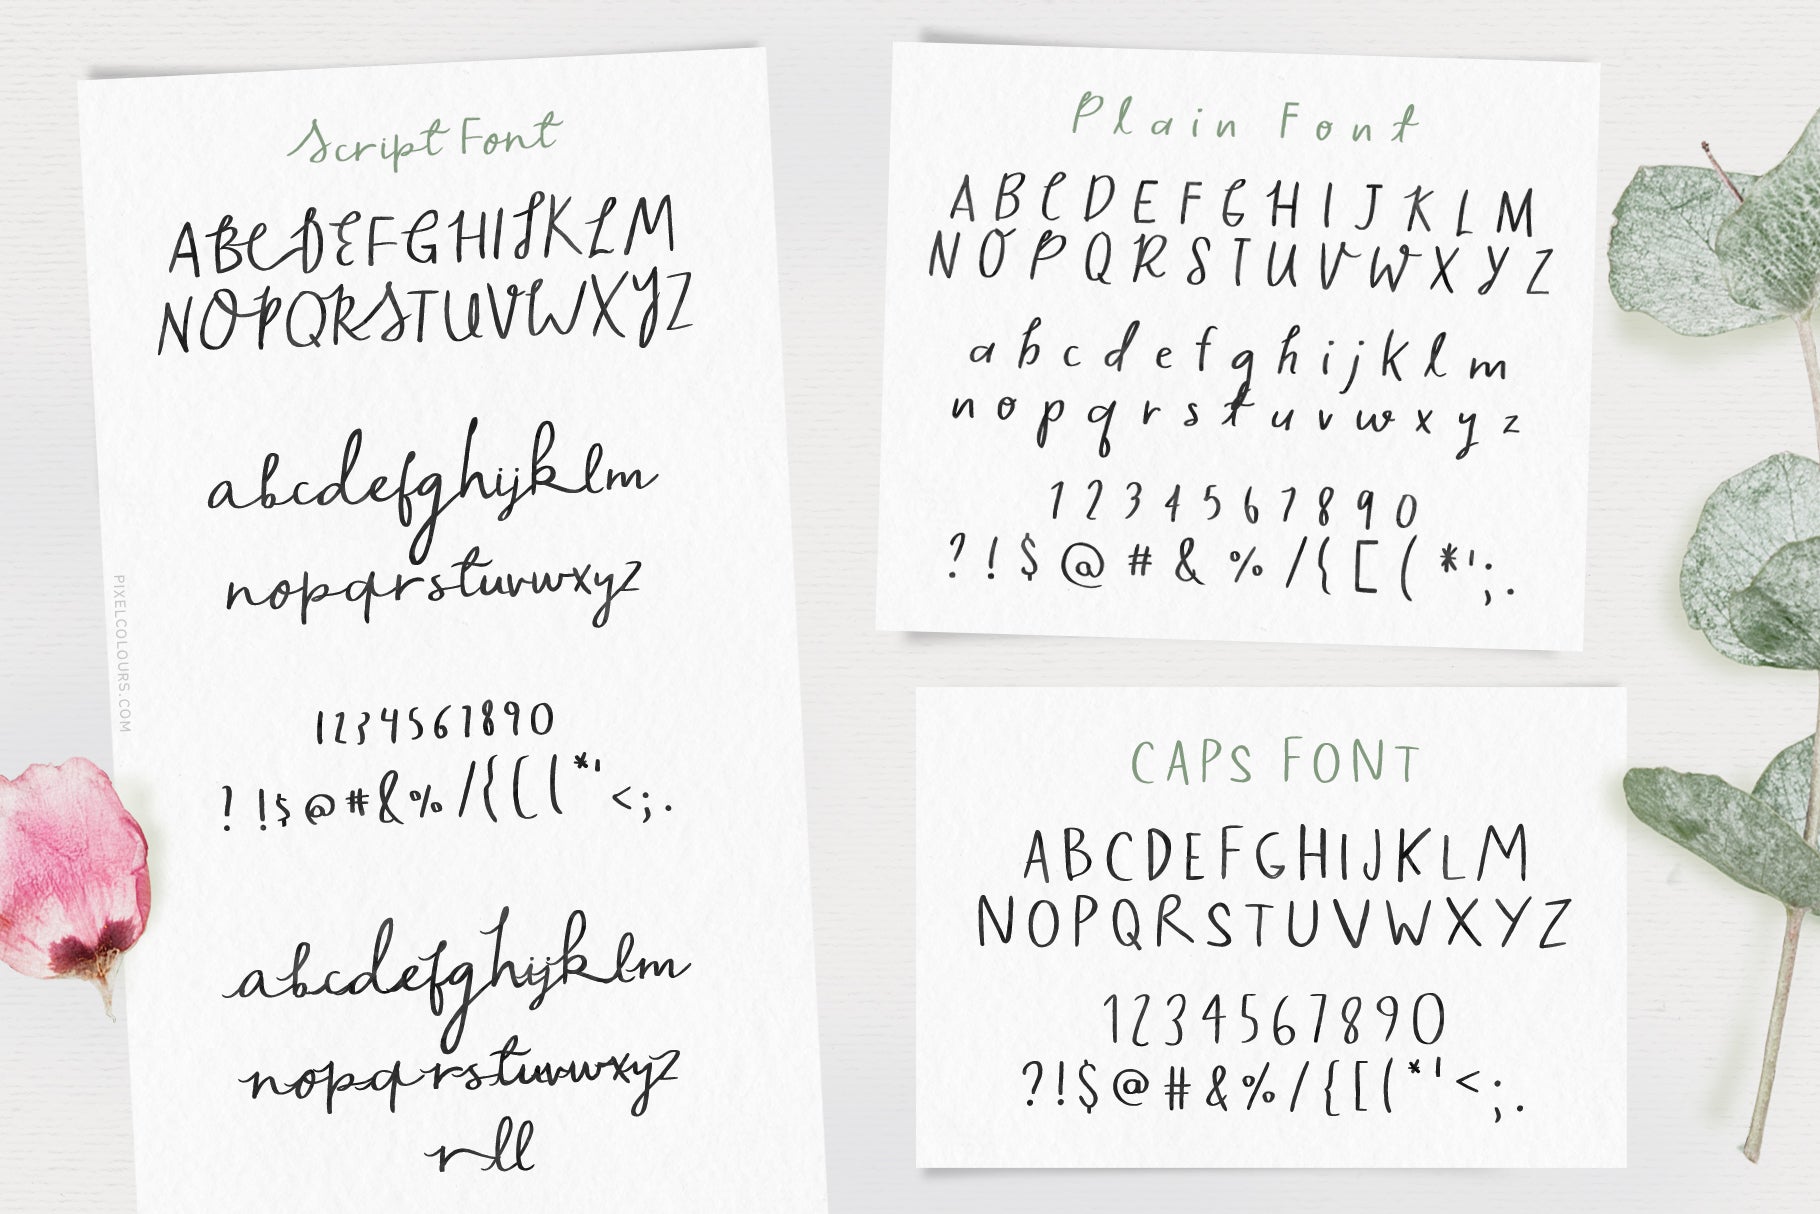 Script Font
ABCDEFGHIJKLM
NOPQRSTUVWXYZ
abcdefghijklm
nopqrstuvwxyz
1234567890
?!$@#&%/{[(*'<;.
abcdefghijklm
nopqrstuvwxyz
rll
PIXELCOLOURS.COM
Plain Font
A B C D E F G H I J K L M
N O P Q R S T U V W X Y Z
a b c d e f g h i j k l m
n o p q r s t u v w x y z
1 2 3 4 5 6 7 8 9 0
? ! $ @ # & % / { [ ( * ' ; .
CAPS FONT
ABCDEFGHIJKLM
NOPQRSTUVWXYZ
1234567890
?!$@#&%/{[(*'<;.